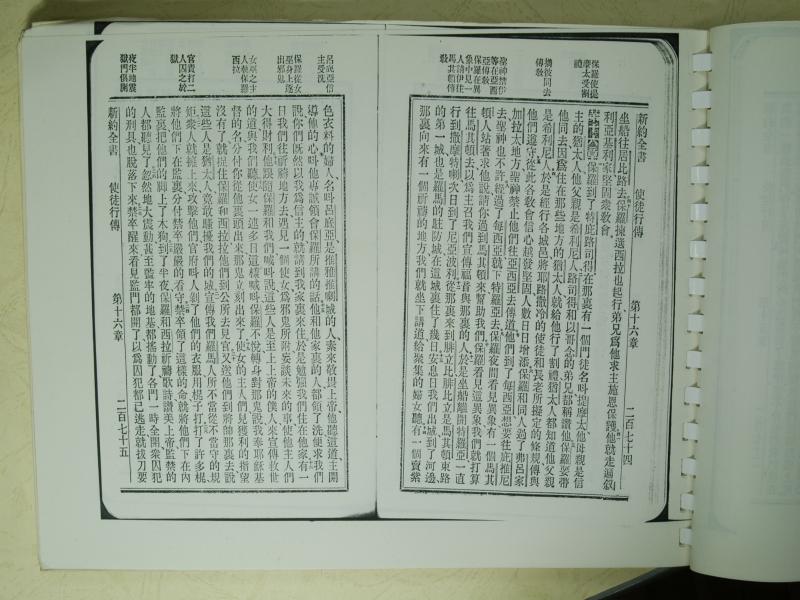 新約全書 使徒行傳 第十六章 二百七十四
坐船往居比路去保羅揀選西拉也起行弟兄爲他求主施恩保護他就走遍叙
利亞基利家堅固衆敎會
保羅到了特庇路司得在那裏有一個門徒名叫提摩太他母親是信
主的猶太人他父親是希利尼人路司得和以哥念的弟兄都稱讚他保羅要帶
他同去因爲住在那些地方的猶太人就給他行了割禮猶太人都知道他父親
是希利尼人於是經行各城邑將耶路撒冷的使徒和長老所擬定的條規傳與
他們遵守從此各敎會信心越發堅固人數日日增添保羅和同人過了弗呂家
加拉太地方聖神禁止他們往亞西亞去傳道他們到了每西亞想要往庇推尼
去聖神也不許經過了每西亞就下特羅亞去保羅夜間看見異象有一個馬其
頓人站著求他說請你過到馬其頓來幫助我們保羅看見這異象我們就打算
往馬其頓去以爲主召我們宣傳福音與那裏的人於是坐船離開特羅亞一直
行到撒摩特喇次日到了尼亞波利從那裏來到腓立比腓立比是馬其頓東路
的第一城也是羅馬的駐防城在這城裏住了幾日安息日我們出城到了河邊
那裏向來有一個祈禱的地方我們就坐下講道給聚集的婦女聽有一個賣紫
保羅使提摩太受割禮
攜彼同去傳敎
聖神禁伊等在亞西亞傳敎
保羅在異象中見一人請伊往馬其頓傳敎
色衣料的婦人名叫呂底亞是推雅推喇城的人素來敬畏上帝他聽這道主開
導他的心叫他專心領會保羅所講的話他和他家裏的人都領了洗便求我們
說你們既然以我爲信主的就請到我家裏來住於是勉強我們住在他家有一
日我們往祈禱地方去遇見一個使女爲邪鬼所附妄談未來的事使他主人們
大得財利他跟隨保羅和我們喊叫說這些人是至上上帝的僕人來宣傳救世
的道與我們聽使女一連多日這樣喊叫保羅不悅轉身對那鬼說我奉耶穌基
督的名分付你從他裏頭出來那鬼立刻出來了使女的主人們見獲利的指望
沒有了就捉住保羅和西拉拉他們到公所去見官又送他們到將帥那裏去說
這些人是猶太人竟敢騷擾我們的城宣傳我們羅馬人所不當從不當守的規
矩衆人就擁上來攻擊他們官府叫人剝了他們的衣服用棍子打打了許多棍
將他們下在監裏分付禁卒嚴嚴的看守禁卒領了這樣的命就將他們下在內
監裏把他們的脚上了木狗到了半夜保羅和西拉祈禱歌詩讚美上帝監禁的
人都聽見了忽然地大震動甚至監牢的地基都搖動了各門一時全開衆囚犯
的刑具也脫落下來禁卒醒來看見監門都開了以爲囚犯都已逃走就拔刀要
新約全書 使徒行傳 第十六章 二百七十五
呂底亞信主受洗
保羅從女巫身上逐出邪鬼
女巫之主人執保羅西拉
官責打二人囚之於獄
夜半地震獄門俱開